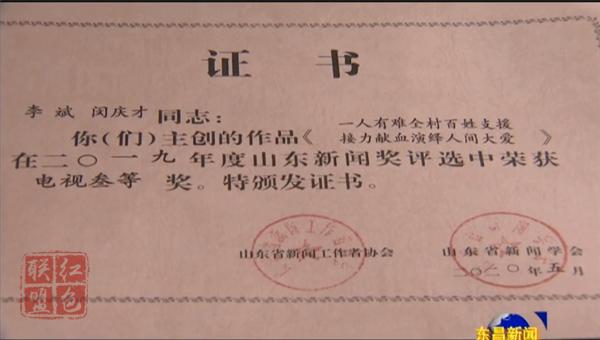 证 书
李斌 闵庆才 同志：
你(们)主创的作品《一人有难全村百姓支援
接力献血演绎人间大爱》
在二〇一九年度山东新闻奖评选中荣获
电视叁等 奖。特颁发证书。
山东省新闻工作者协会
山东省新闻学会
二〇二〇年五月
红色
联盟
东昌新闻